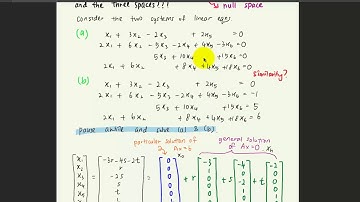 and the three spaces!!!
null space
Consider the two systems of linear eqns.
(a) x₁ + 3x₂ - 2x₃ + 2x₅ = 0
2x₁ + 6x₂ - 5x₃ - 2x₄ + 4x₅ - 3x₆ = 0
5x₃ + 10x₄ + 15x₆ = 0
2x₁ + 6x₂ + 8x₄ + 4x₅ + 18x₆ = 0
similarity?
(b) x₁ + 3x₂ - 2x₃ + 2x₅ = 0
2x₁ + 6x₂ - 5x₃ - 2x₄ + 4x₅ - 3x₆ = -1
5x₃ + 10x₄ + 15x₆ = 5
2x₁ + 6x₂ + 8x₄ + 4x₅ + 18x₆ = 6
pause awhile and solve (a) & (b)
particular solution of Ax=b
general solution of Ax=0
xₕ
x₁ -3r-4s-2t 0 -3 -4 -2
x₂ r 0 1 0 0
x₃ = -2s = 0 + r 0 + s -2 + t 0
x₄ s 0 0 1 0
x₅ t 0 0 0 1